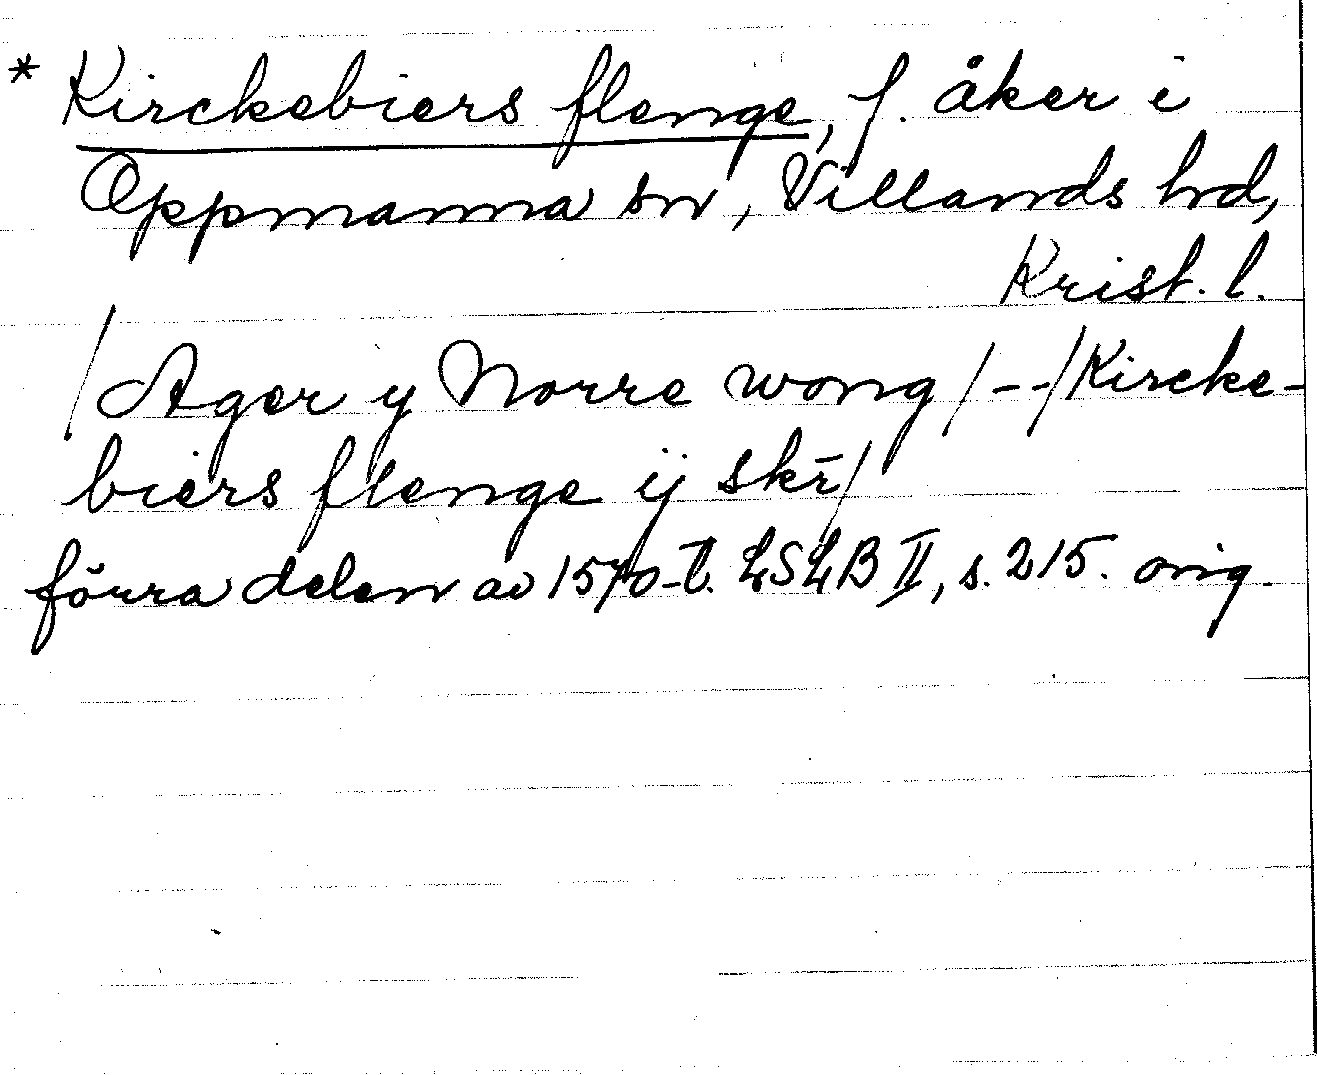 * Kirckebiers flenge, f. åker i
Oppmanna sn, Villands hd,
Krist. l.
/Ager y Norre wong/--/Kircke-
biers flenge ij skr̄/
förra delen av 1570-t. LSLB II, s. 215. orig.